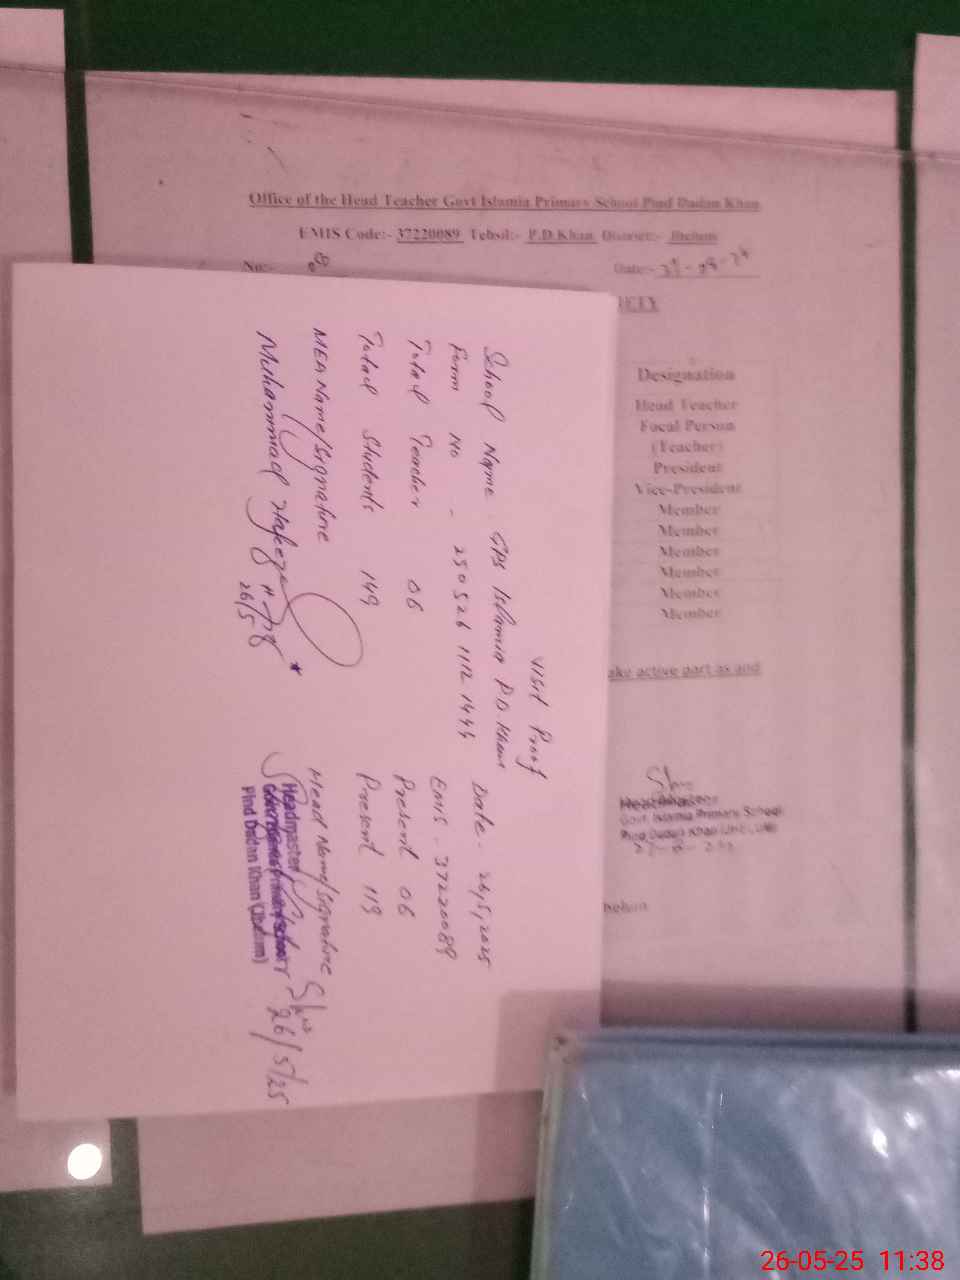 Office of the Head Teacher Govt Islamia Primary School Pind Dadan Khan
EMIS Code:- 37220089 Tehsil:- P.D.Khan District:- Jhelum
No:-
Date:-
Designation
Head Teacher
Focal Person
(Teacher)
President
Vice-President
Member
Member
Member
Member
Member
Member
ake active part as and
Govt. Islamia Primary School
Pind Dadan Khan (Jhelum)
helum
Visit Proof
School Name - GPS Islamia P.D.Khan Date - 26,5,2025
Form No - 250526 1112 1444 EMIS - 37220089
Total Teacher 06 Present 06
Total Students 149 Present 119
MEA Name/Signature Head Name/Signature
Muhammad Hafeez
26/5
Headmaster
Pind Dadan Khan (Jhelum)
26/5/25
26-05-25 11:38